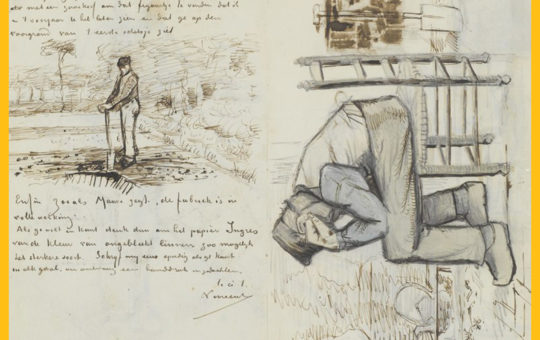 met een om dat figuurtje te vinden dat ik
in 't voorjaar te laten zien en dat ge op den
voorgrond van 't eerste schetsje ziet
Enfin zooals Mauve zegt, de fabriek is in
volle werking.
Als ge wilt & kunt denk dan om het papier Ingres
van de kleur van ongebleekt linnen zoo mogelijk
het sterkere soort. Schryf my eens spoedig als ge kunt
in elk geval, en ontvang een handdruk in gedachten.
t. à t.
Vincent